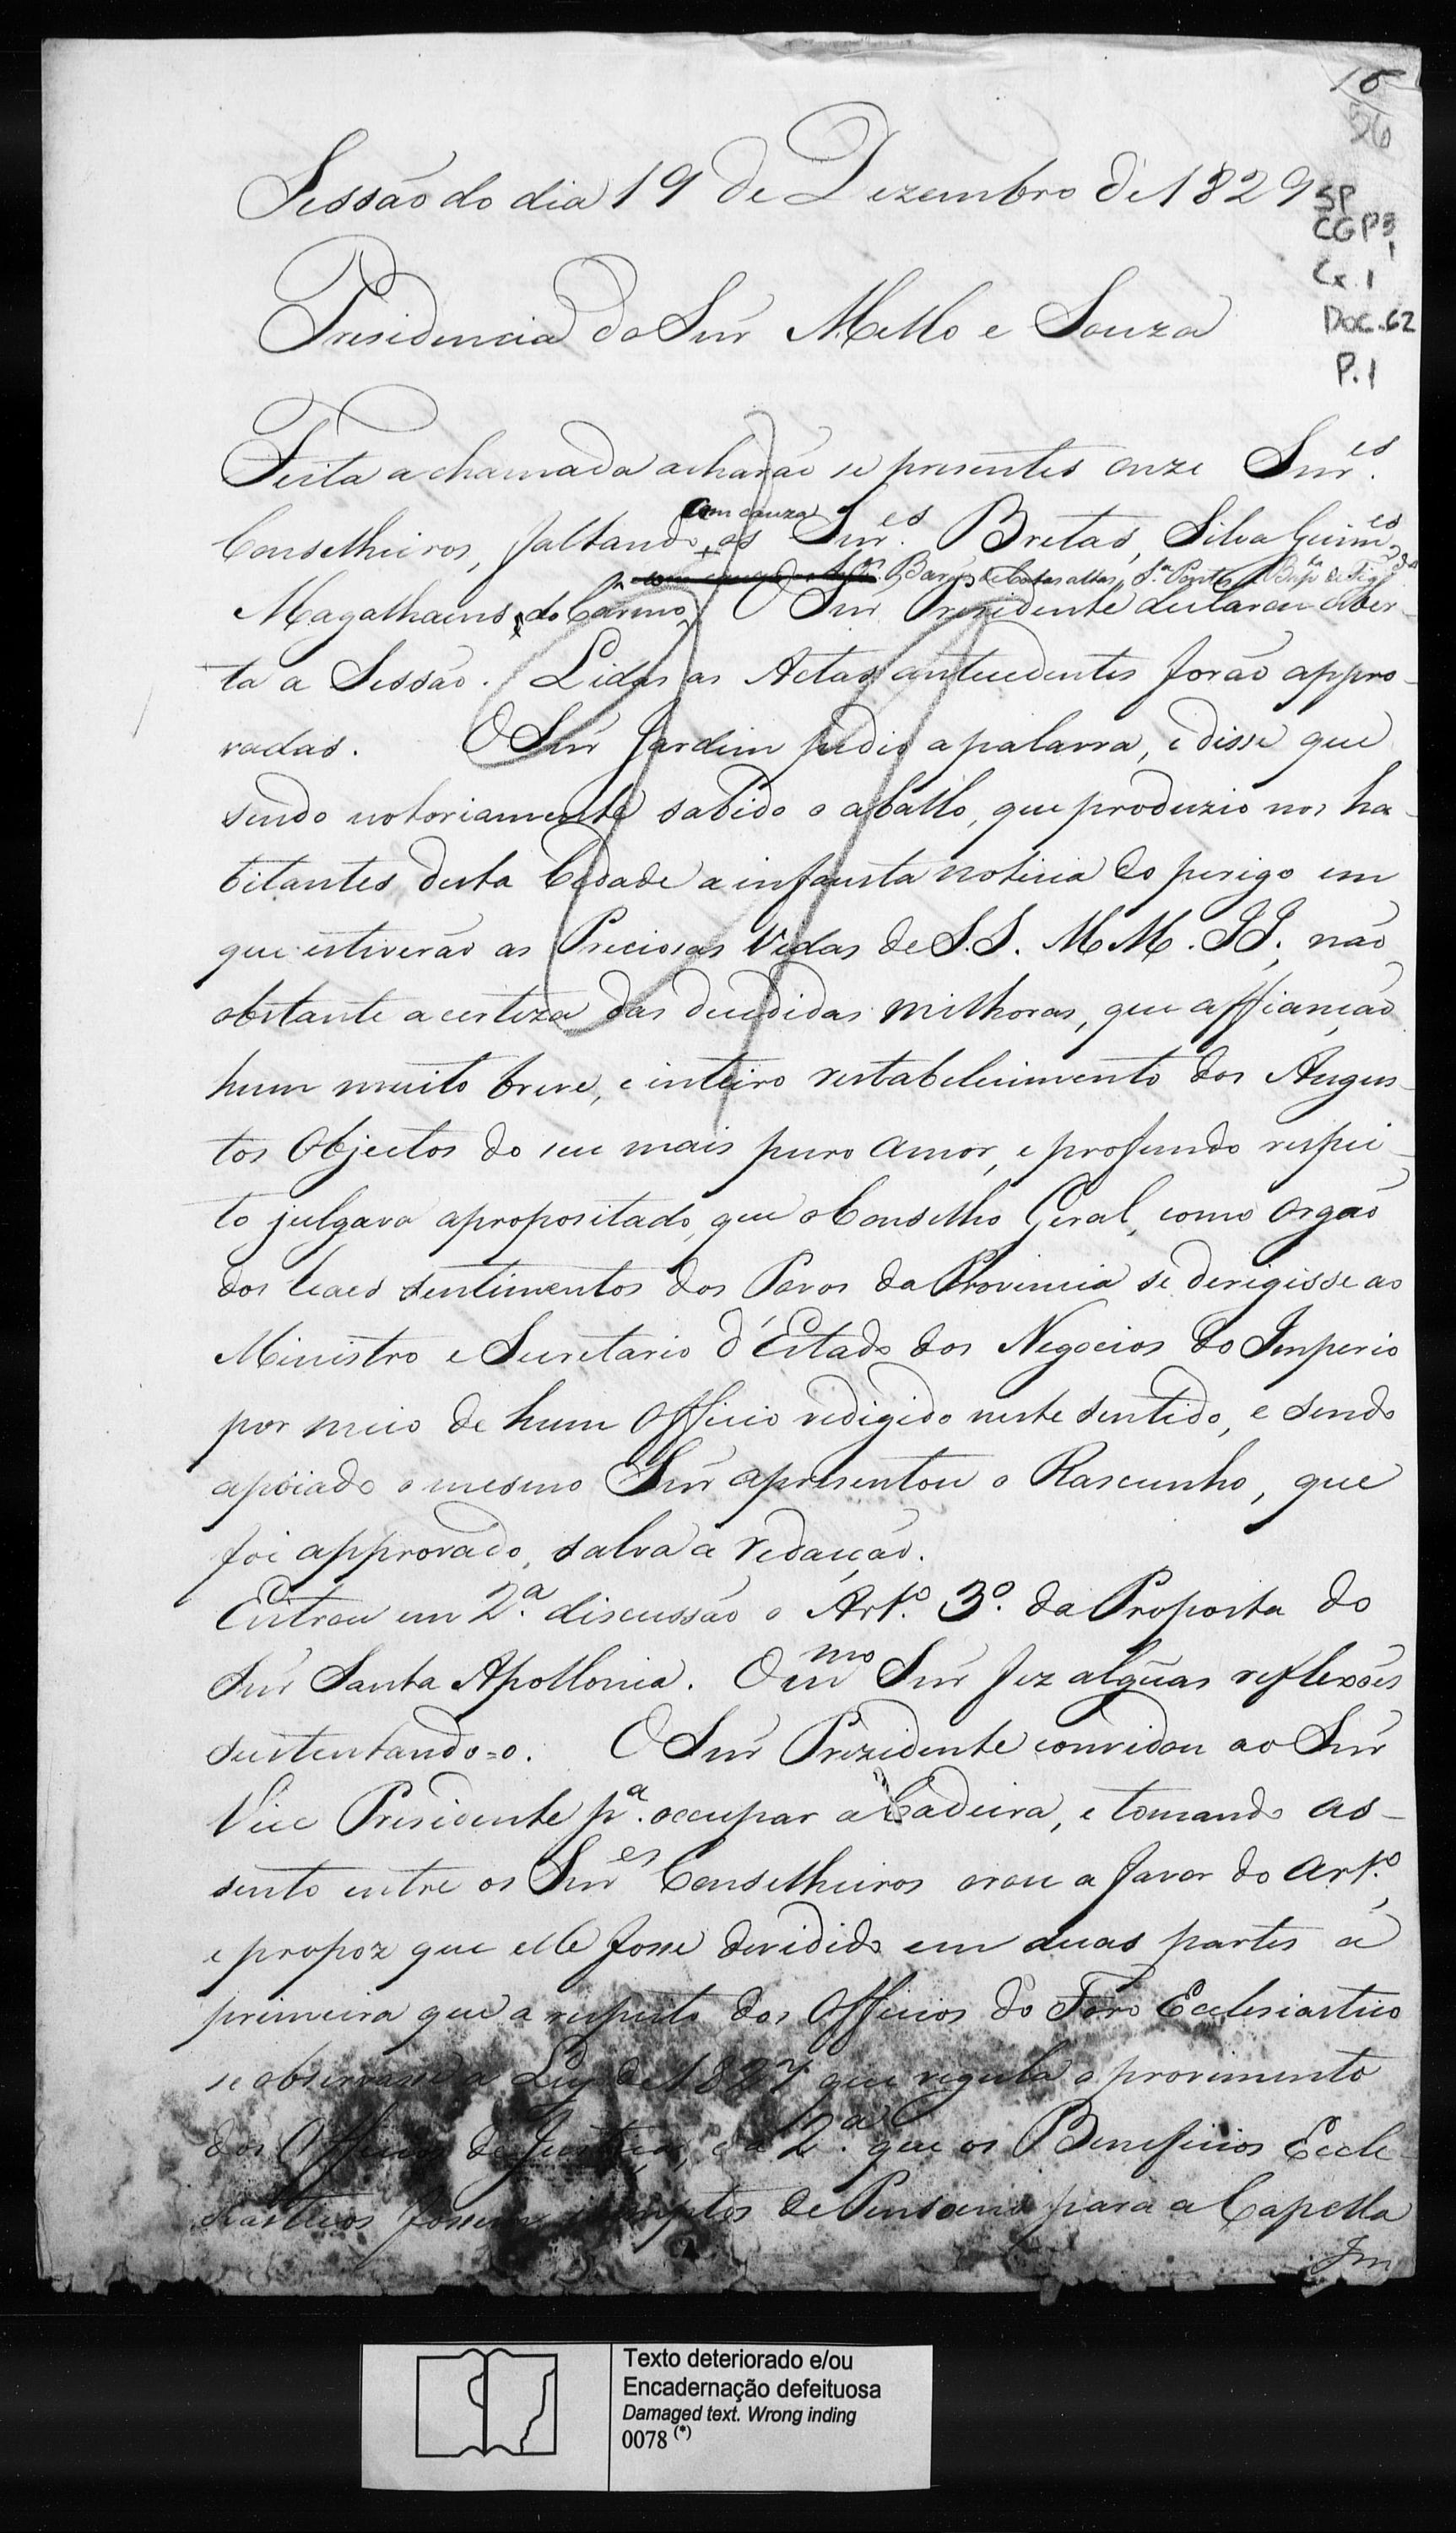 16
56
Sessão do dia 19 de Dezembro de 1829
SP
CGP3
Cx. 1
Doc. 62
P. 1
Presidencia do Snr Mello e Souza
Feita a chamada acharão se presentes onze Snr.es
Conselheiros, faltando com cauza os Snr.es Bretas, Silva Guim.es
Barão de Cocaes
Magalhaens, do Carmo, O Snr Presidente declarou aber-
ta a Sessão. Lidas as Actas antecedentes forão appro-
vadas. O Snr Jardim pedio a palavra, e disse que
sendo notoriamente sabido o aballo, que produzio nos ha-
bitantes desta Cidade a infausta noticia do perigo em
que estiverão as Preciosas Vidas de S.S. M M. I I., não
obstante a certeza das decididas milhoras, que affianção
hum muito breve, e inteiro restabelecimento dos Augus-
tos Objectos do seu mais puro amor, e profundo respei-
to julgava apropositado, que o Conselho Geral, como orgão
dos leaes sentimentos dos Povos da Provincia se derigisse ao
Ministro e Secretario d'Estado dos Negocios do Imperio
por meio de hum Officio redigido neste sentido, e sendo
apoiado o mesmo Snr apresentou o Rascunho, que
foi approvado, salva a redacção.
Entrou em 2.ª discussão o Art.º 3.º da Proposta do
Snr Santa Apollonia. O m.mo Snr fez algũas reflexões
sustentando=o. O Snr Prezidente convidou ao Snr
Vice Presidente p.ª occupar a Cadeira, e tomando as-
sento entre os Snr.es Conselheiros orou a favor do Art.º,
e propoz que elle fosse devidido em duas partes a
primeira que a respeito dos Officios do Foro Ecclesiastico
se observasse a Ley de 1827 que regula o provimento
dos Officios de Justiça, e a 2.ª que os Beneficios Eccle-
siasticos fossem izemptos de Pensoens para a Capella
Im
Texto deteriorado e/ou
Encadernação defeituosa
Damaged text. Wrong inding
0078 (*)